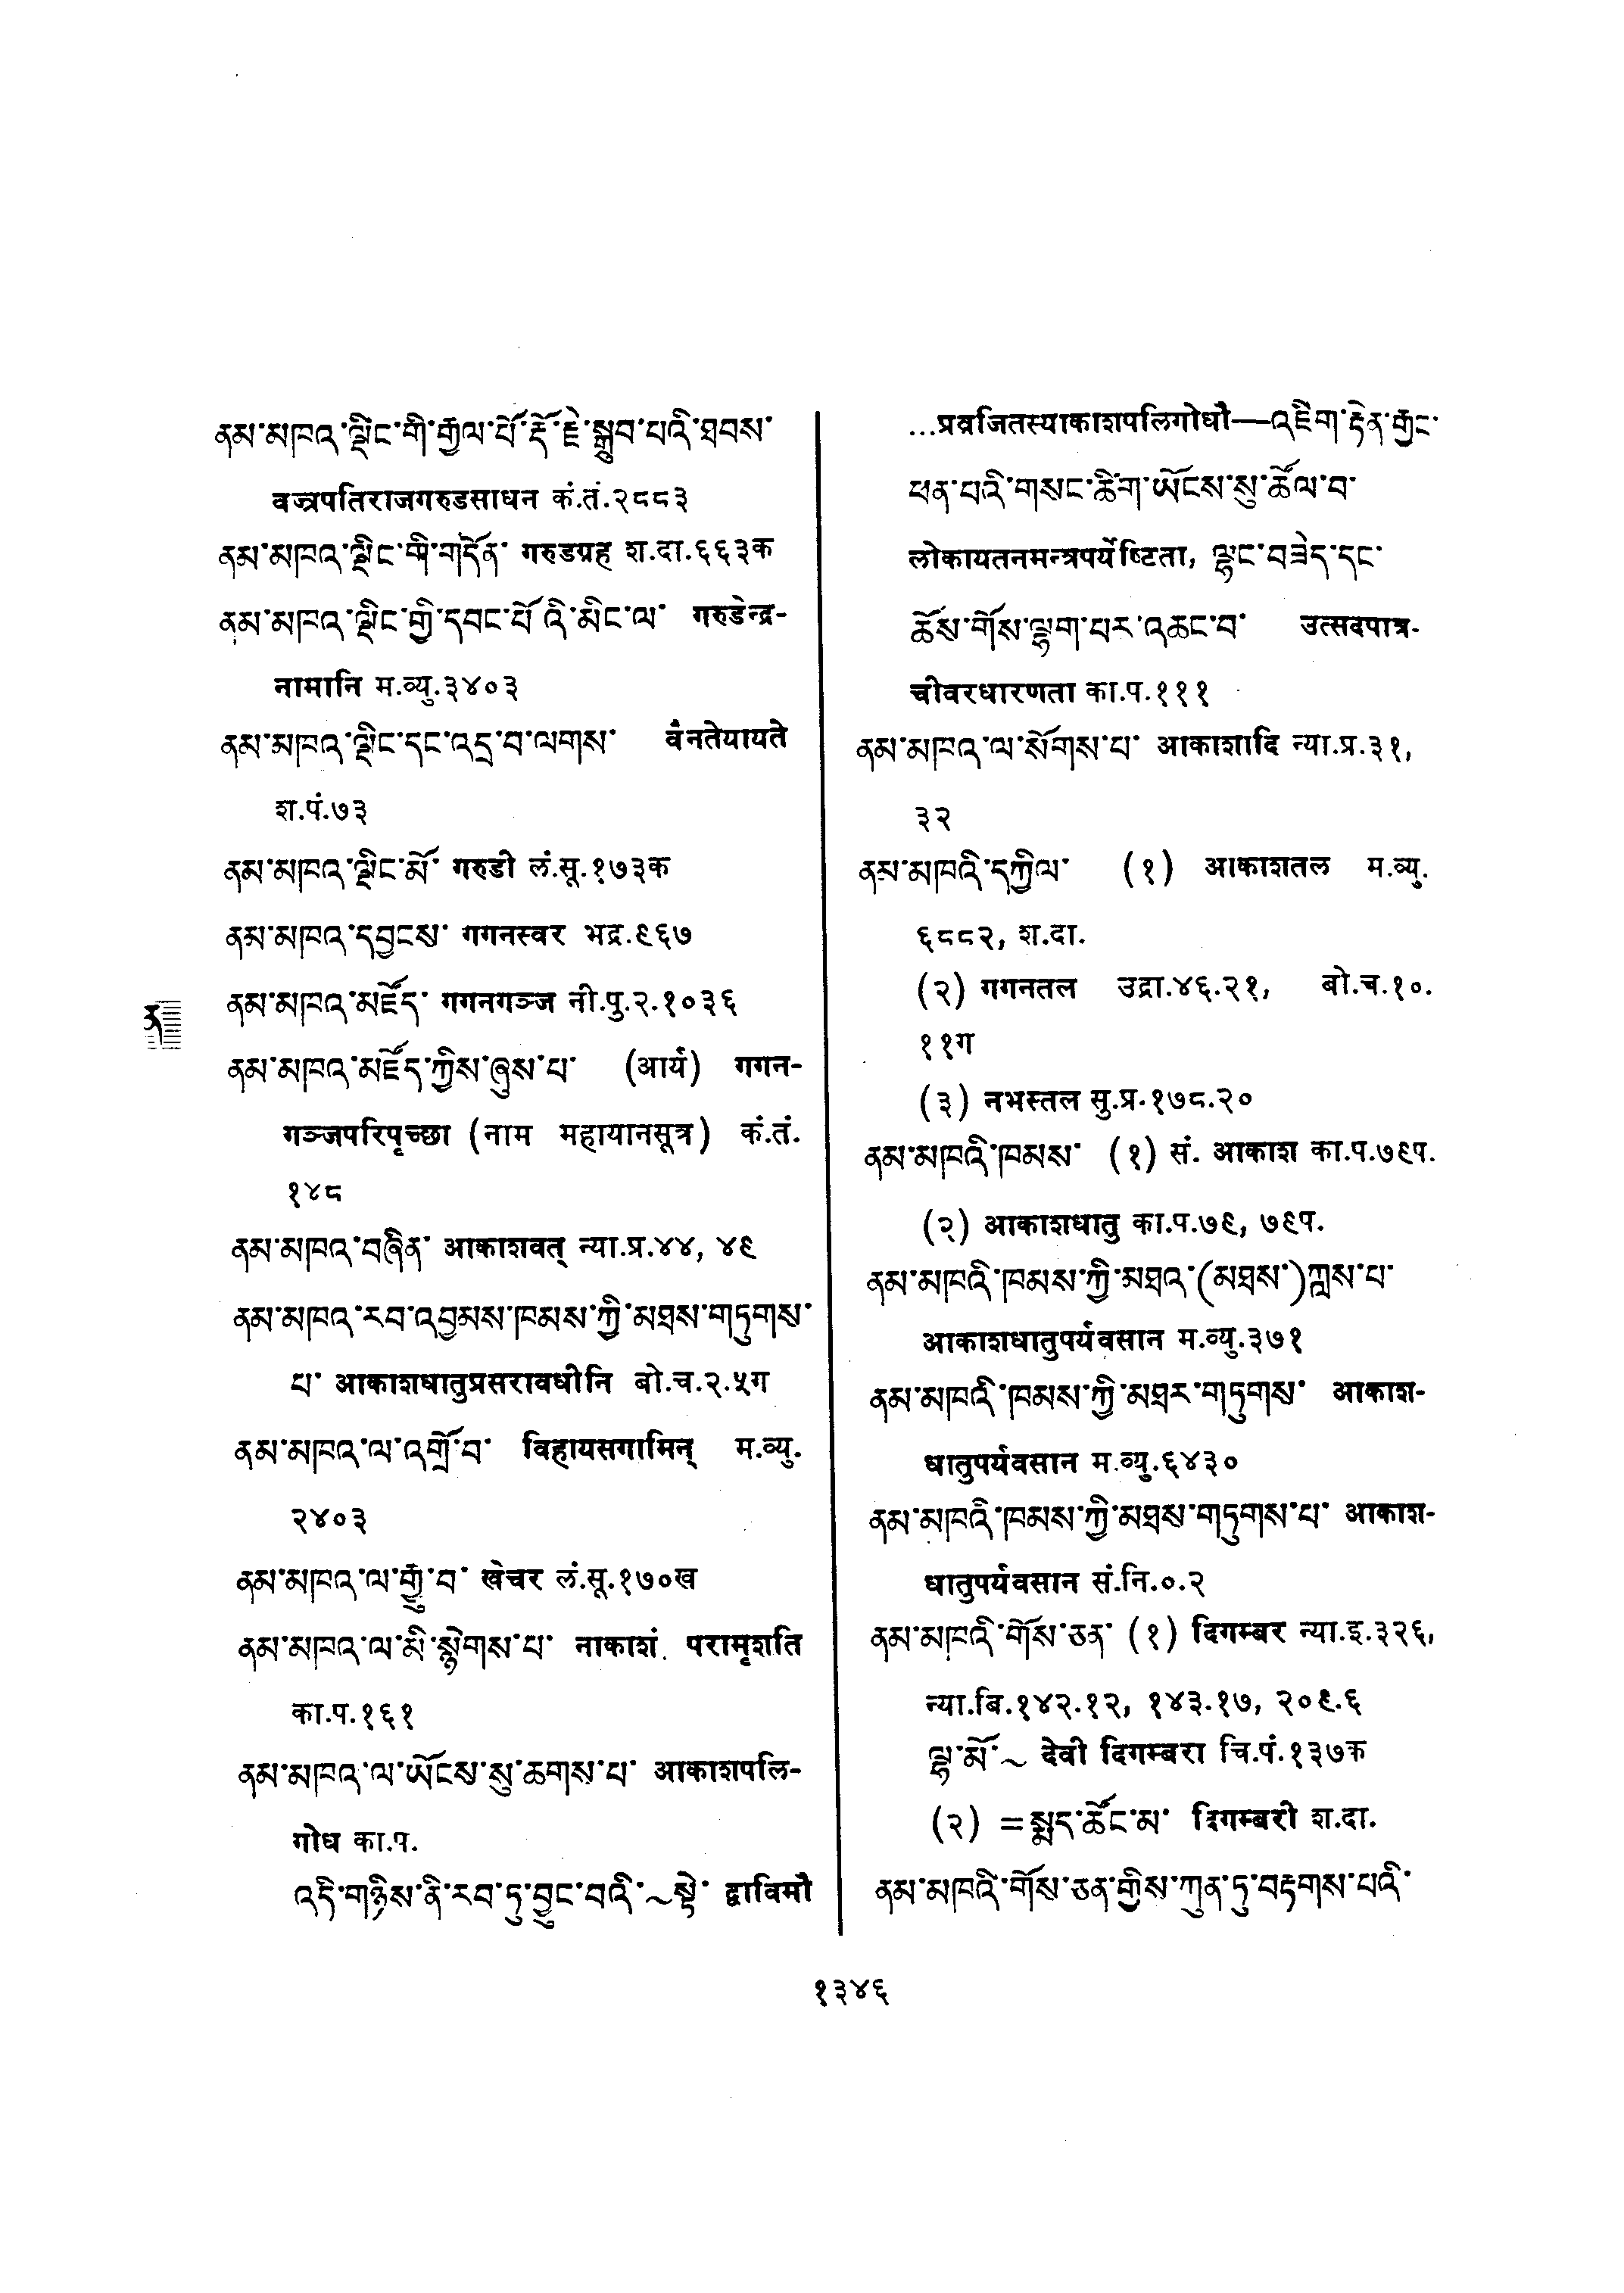 ནམ་མཁའ་ལྡིང་གི་རྒྱལ་པོ་རྡོ་རྗེ་སྒྲུབ་པའི་ཐབས་
वज्रपतिराजगरुडसाधन कं.तं.२८८३
ནམ་མཁའ་ལྡིང་གི་གདོན་ गरुडग्रह श.दा.६६३क
ནམ་མཁའ་ལྡིང་གྱི་དབང་པོ་འི་མིང་ལ་ गरुडेन्द्र-
नामानि म.व्यु.३४०३
ནམ་མཁའ་ལྡིང་དང་འདྲ་བ་ལགས་ वैनतेयायते
श.पं.७३
ནམ་མཁའ་ལྡིང་མོ་ गरुडी लं.सू.१७३क
ནམ་མཁའ་དབྱངས་ गगनस्वर भद्र.९६७
ནམ་མཁའ་མཛོད་ गगनगञ्ज नी.पु.२.१०३६
ན
ནམ་མཁའ་མཛོད་ཀྱིས་ཞུས་པ་ (आर्य) गगन-
गञ्जपरिपृच्छा (नाम महायानसूत्र) कं.तं.
१४८
ནམ་མཁའ་བཞིན་ आकाशवत् न्या.प्र.४४, ४९
ནམ་མཁའ་རབ་འབྱམས་ཁམས་ཀྱི་མཐས་གཏུགས་
པ་ आकाशधातुप्रसरावधीनि बो.च.२.५ग
ནམ་མཁའ་ལ་འགྲོ་བ་ विहायसगामिन् म.व्यु.
२४०३
ནམ་མཁའ་ལ་རྒྱུ་བ་ खेचर लं.सू.१७०ख
ནམ་མཁའ་ལ་མི་སྙེགས་པ་ नाकाशं परामृशति
का.प.१६१
ནམ་མཁའ་ལ་ཡོངས་སུ་ཆགས་པ་ आकाशपलि-
गोध का.प.
འདི་གཉིས་ནི་རབ་ཏུ་བྱུང་བའི་~སྟེ་ द्वाविमौ
...प्रव्रजितस्याकाशपलिगोधौ—འཇིག་རྟེན་རྒྱང་
ཕན་པའི་གསང་ཚིག་ཡོངས་སུ་ཚོལ་བ་
लोकायतनमन्त्रपर्येष्टिता, ལྷུང་བཟེད་དང་
ཆོས་གོས་ལྷག་པར་འཆང་བ་ उत्सदपात्र-
चीवरधारणता का.प.१११
ནམ་མཁའ་ལ་སོགས་པ་ आकाशादि न्या.प्र.३१,
३२
ནམ་མཁའི་དཀྱིལ་ (१) आकाशतल म.व्यु.
६८८२, श.दा.
(२) गगनतल उद्रा.४६.२१, बो.च.१०.
११ग
(३) नभस्तल सु.प्र.१७८.२०
ནམ་མཁའི་ཁམས་ (१) सं. आकाश का.प.७९प.
(२) आकाशधातु का.प.७९, ७९प.
ནམ་མཁའི་ཁམས་ཀྱི་མཐའ་(མཐས་)ཀླས་པ་
आकाशधातुपर्यवसान म.व्यु.३७१
ནམ་མཁའི་ཁམས་ཀྱི་མཐར་གཏུགས་ आकाश-
धातुपर्यवसान म.व्यु.६४३०
ནམ་མཁའི་ཁམས་ཀྱི་མཐས་གཏུགས་པ་ आकाश-
धातुपर्यवसान सं.नि.०.२
ནམ་མཁའི་གོས་ཅན་ (१) दिगम्बर न्या.इ.३२६,
न्या.बि.१४२.१२, १४३.१७, २०९.६
ལྷ་མོ་~ देवी दिगम्बरा चि.पं.१३७क
(२) =སྨད་ཚོང་མ་ दिगम्बरी श.दा.
ནམ་མཁའི་གོས་ཅན་གྱིས་ཀུན་ཏུ་བརྟགས་པའི་
१३४६